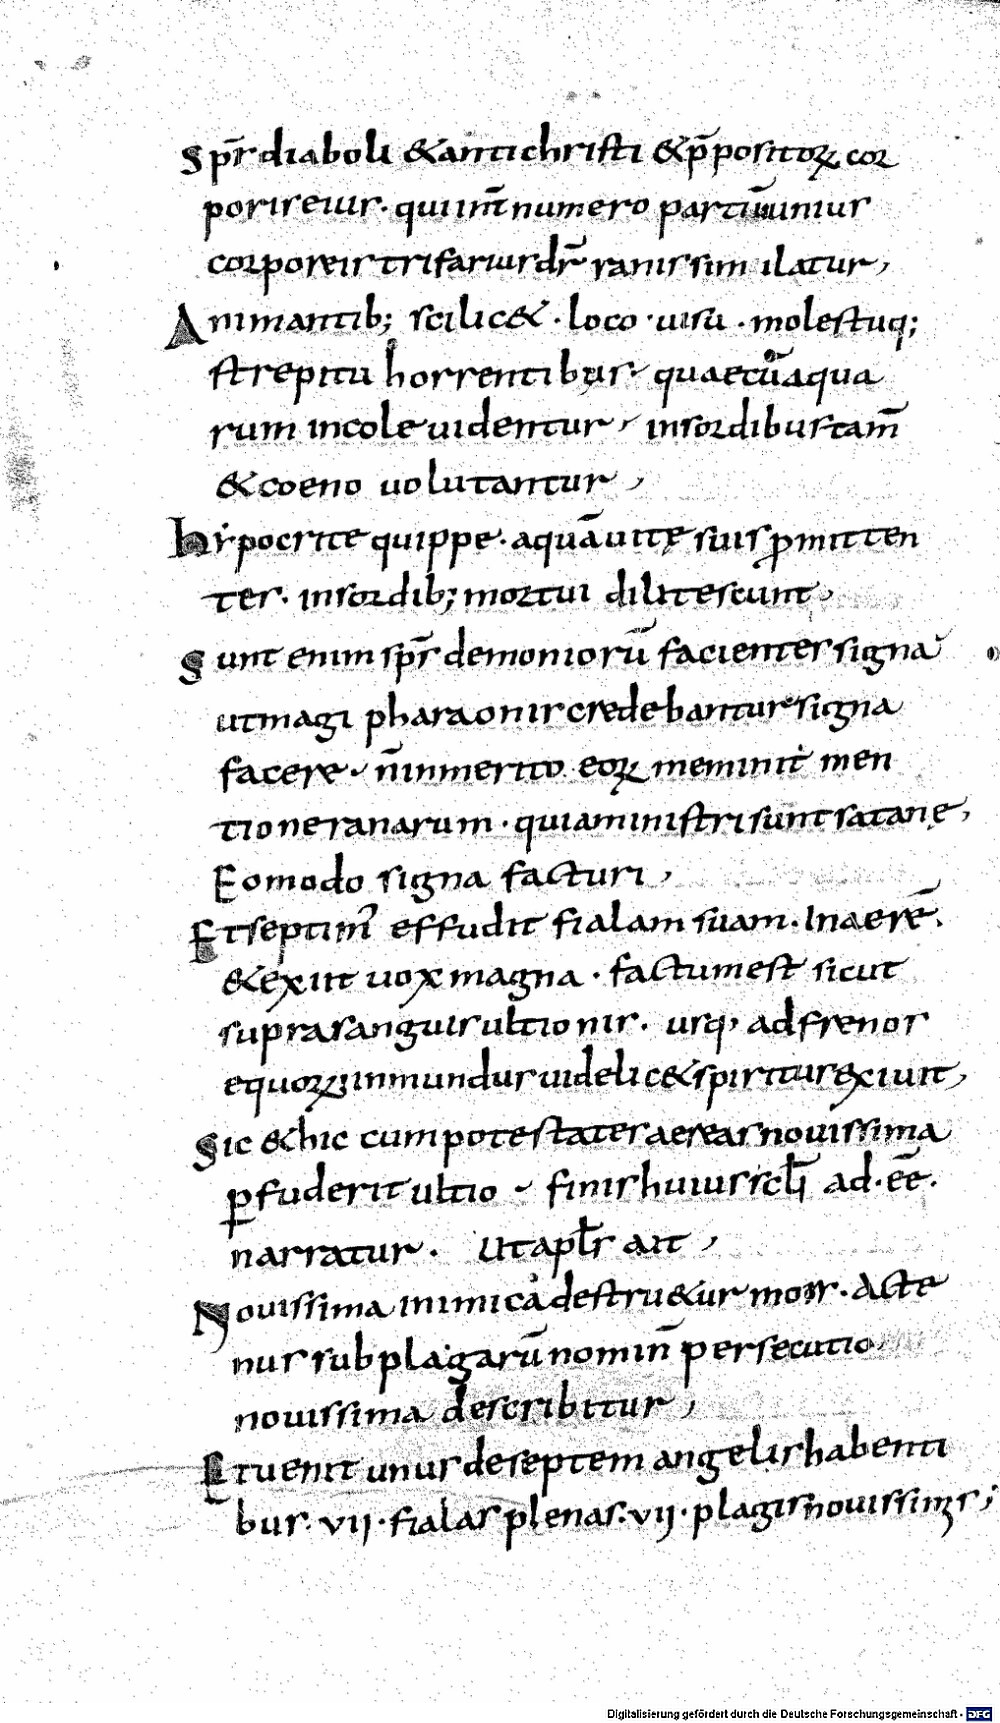 Sp̄s diaboli & antichristi & p̄positoꝝ cor
poris eius. qui int̄ numero partiū unius
corporeis trifarius dr̄ ranis simi ilatur,
Animantib; scilic& . loco . uisu . molestuq;
strepitu horrentibus. quae cū aqua
rum incole uidentur, in sordibus tam̄
& coeno uolutantur,
hẏpocrite quippe. aquā uitę suis ꝓmitten
tes. in sordib; mortui dilitescunt,
Sunt enim sp̄s demoniorū facientes signa
ut magi pharaonis credebantur signa
facere. n̄ inmerito eoꝝ meminit men
tione ranarum. quia ministri sunt satanę,
Eo modo signa facturi,
Et septim᾽ effudit fialam suam. In aerē.
& exiit uox magna. factum est sicut
supra sanguis ultionis. usq, ad frenos
equoꝝ inmundus uidelic& spiritus exiuit,
Sic & hic cum potestates aereas nouissima
ꝑfuderit ultio. finis huius scl̄i ad.eē.
narratur. Ut apl̄s ait,
Nouissima inimica destru&ur mors. Acte
nus sub plagarū nomin̄ persecutio
nouissima describitur,
Et uenit unus de septem angelis habenti
bus. vij. fialas plenas. vij. plagis nouissimis;